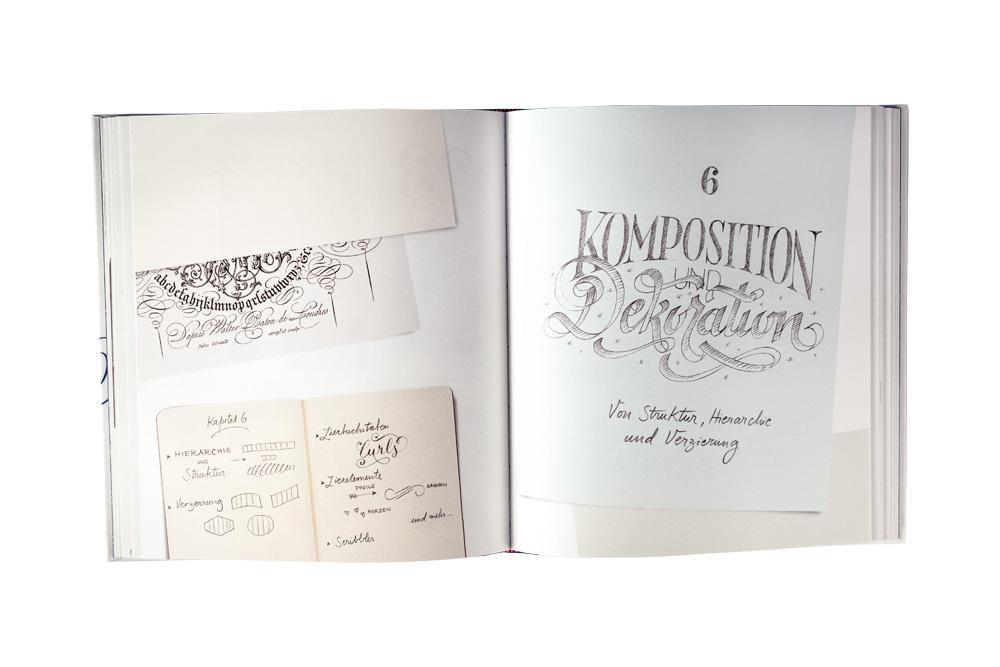 abcdefghijklmnopqrstuvwxyz
Kapitel 6
HIERARCHIE
UND
Struktur
Verzerrung
Zierbuchstaben
Curls
Zierelemente
PFEILE
RAHMEN
HERZEN
und mehr...
Scribbles
6
KOMPOSITION
UND
Dekoration
Von Struktur, Hierarchie
und Verzierung